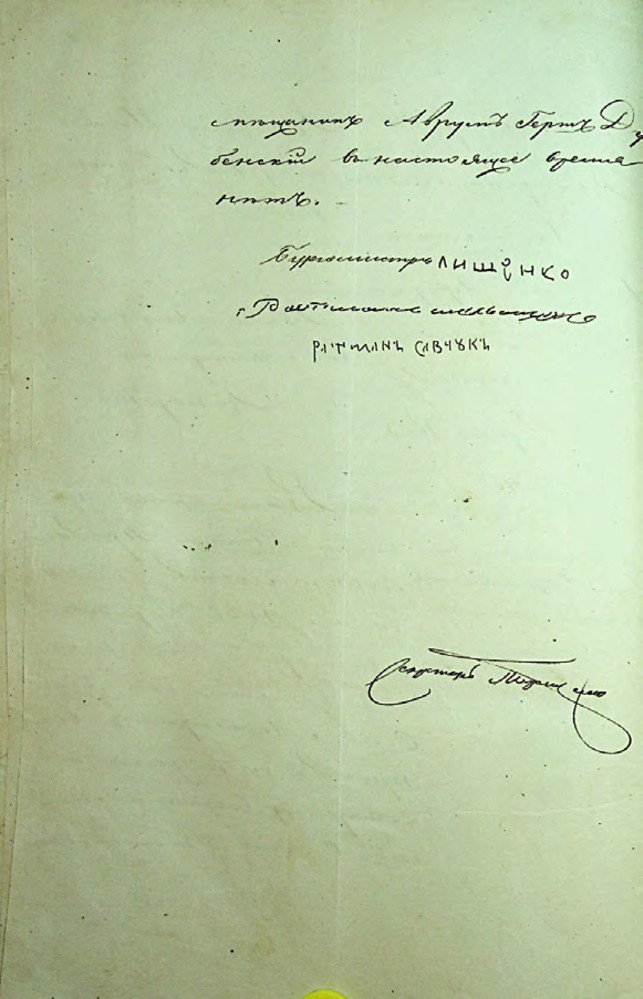 мѣщанинъ Аврумъ Герть Ду
бенскій въ настоящее время
нѣтъ.
Бургомистръ Лищенко
Ратманъ
ратманъ Савчукъ
Секретарь